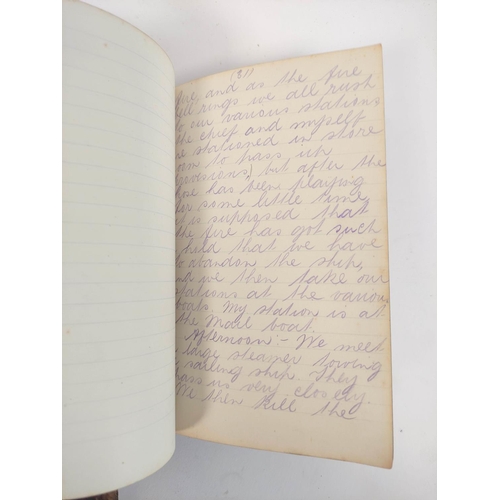 (31)
fire and as the fire
bell rings we all rush
to our various stations
the chief and myself
are stationed in store
room to pass up
provisions, but after the
hose has been playing
for some little time
it is supposed that
the fire has got such
a head that we have
to abandon the ship,
and we then take our
stations at the various
boats. My station is at
the Mail boat.
Afternoon:- We meet
a large steamer towing
a sailing ship. They
pass us very closely.
We then kill the